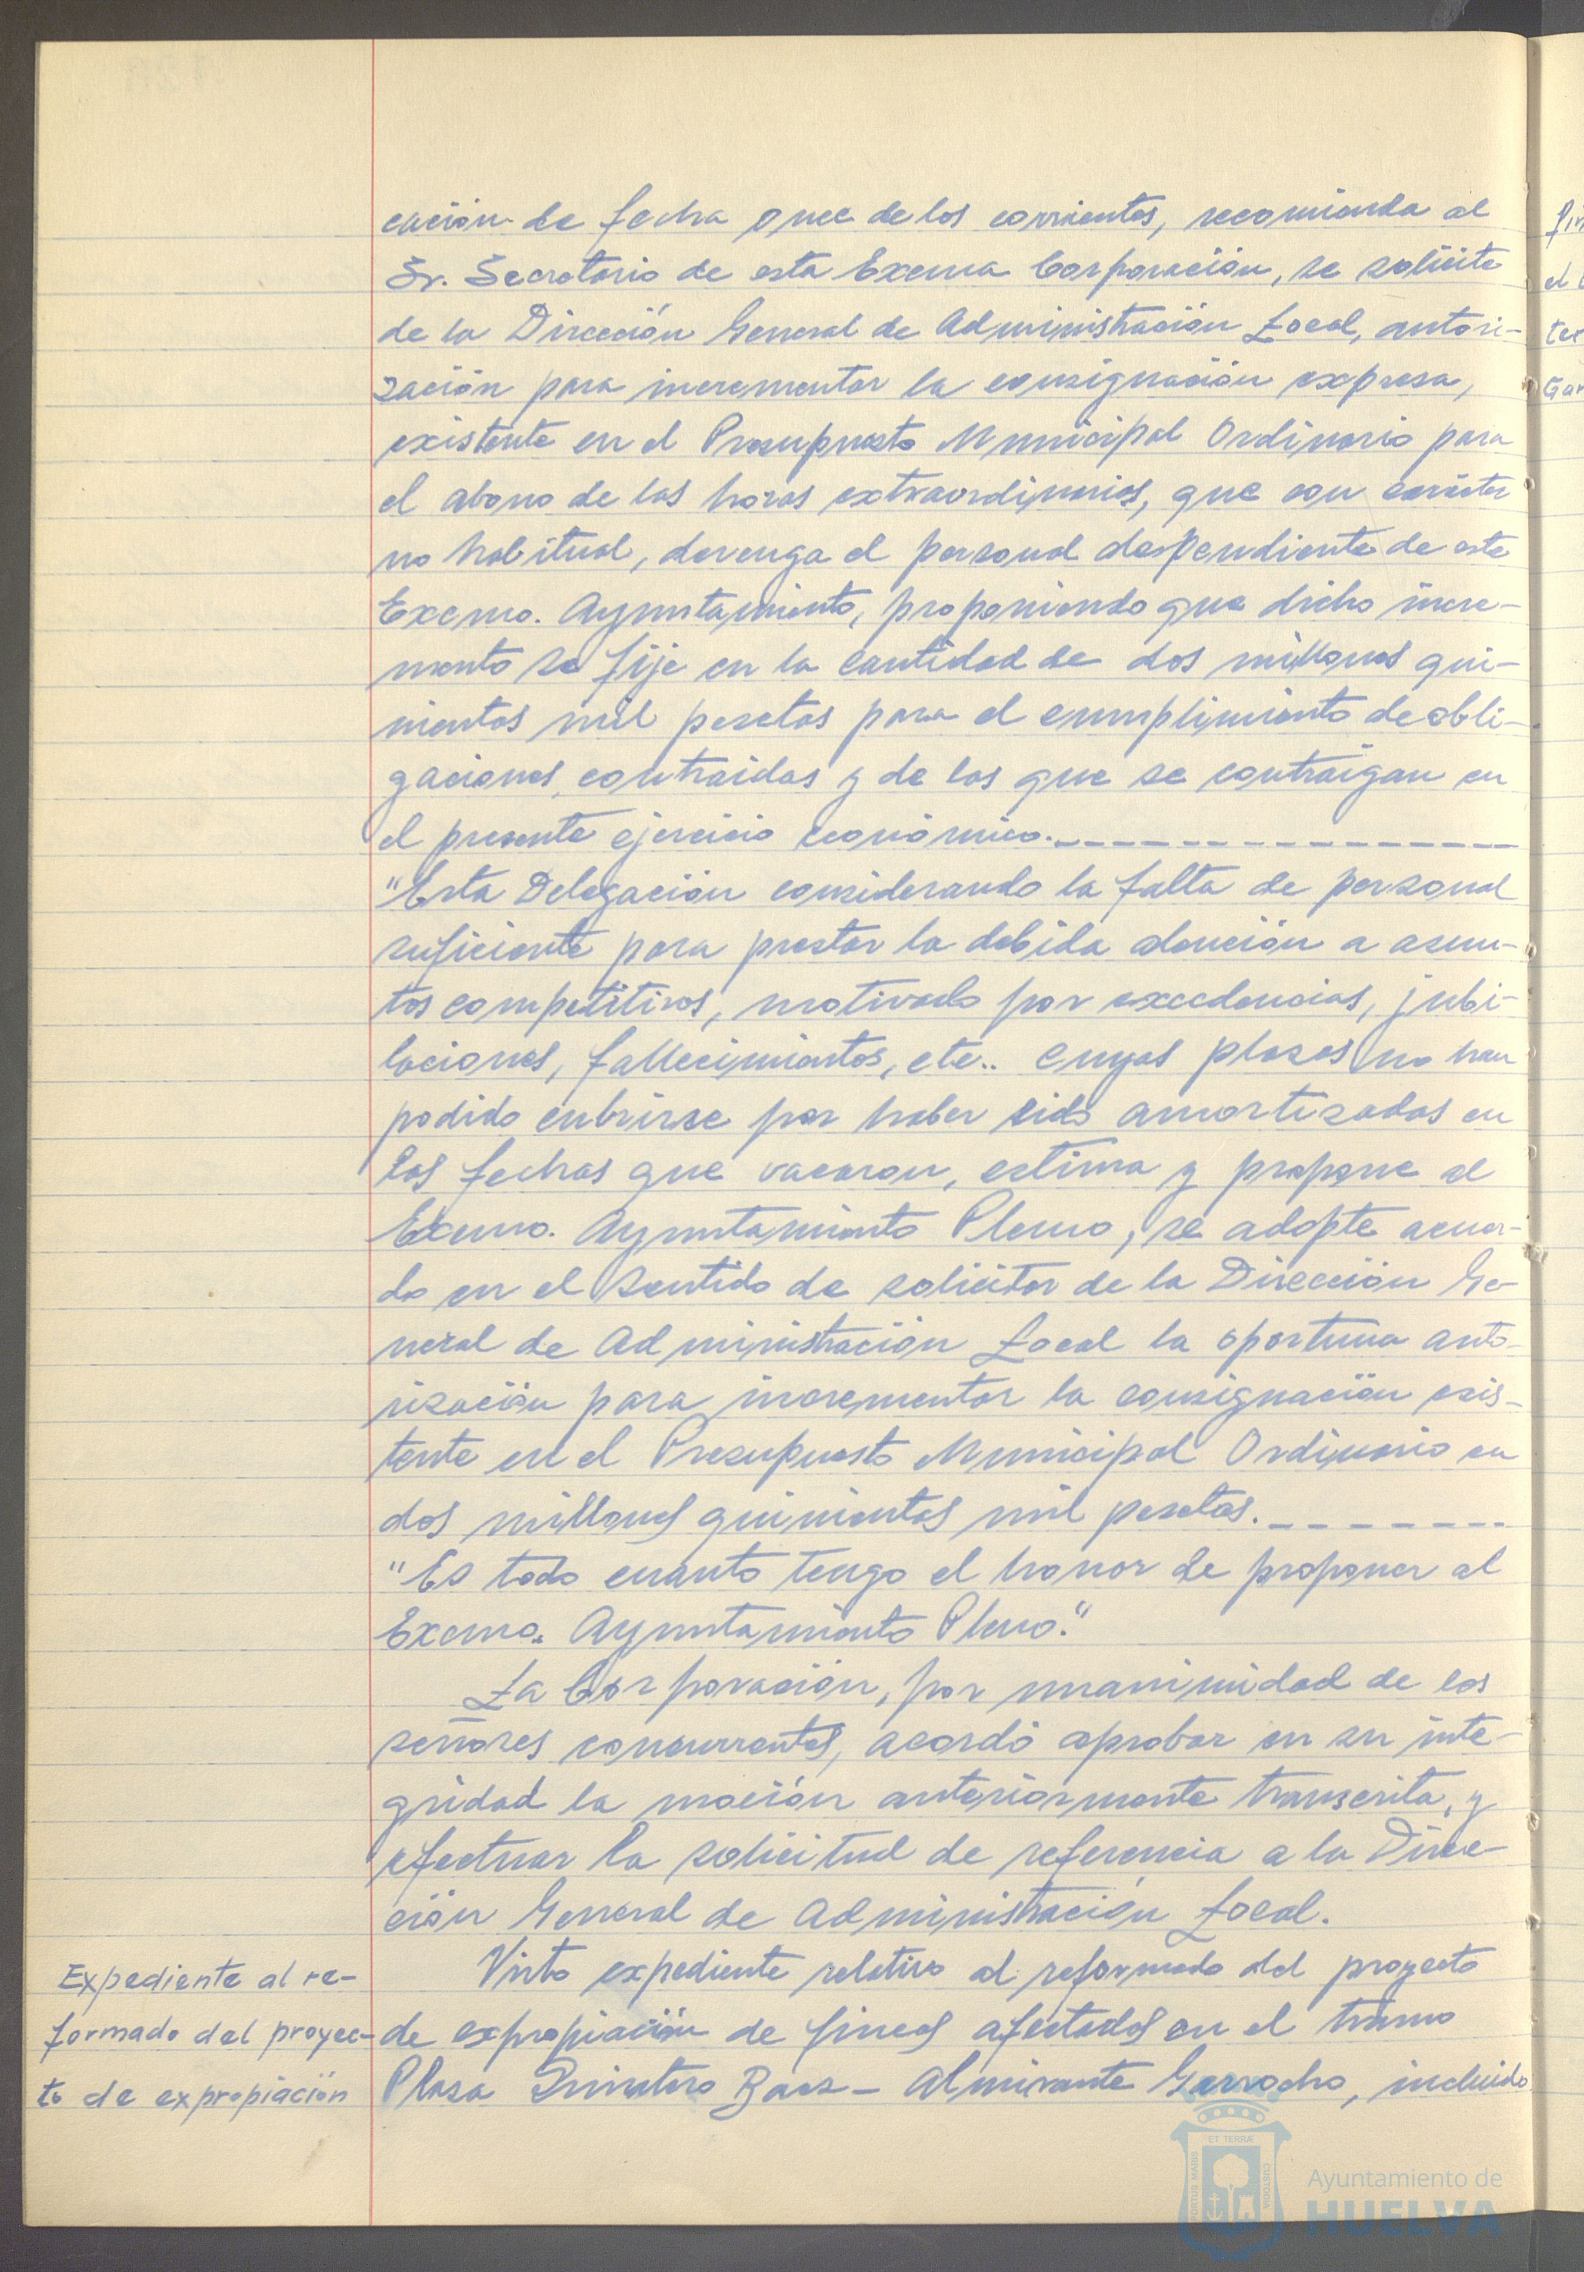 cación de fecha once de los corrientes, recomienda al
Sr. Secretario de esta Excma Corporación, se solicite
de la Dirección General de Administración Local, autori-
zación para incrementar la consignación expresa,
existente en el Presupuesto Municipal Ordinario para
el abono de las horas extraordinarias, que con carácter
no habitual, devenga el personal despendiente de este
Excmo. Ayuntamiento, proponiendo que dicho incre-
mento se fije en la cantidad de dos millones qui-
nientos mil pesetas para el cumplimiento de obli-
gaciones contraidas y de las que se contraigan en
el presente ejercicio económico.
"Esta Delegación considerando la falta de personal
suficiente para prestar la debida atención a asun-
tos competitivos, motivado por excedencias, jubi-
laciones, fallecimientos, etc.. cuyas plazas no han
podido cubrirse por haber sido amortizadas en
las fechas que vacaron, estima y propone al
Excmo. Ayuntamiento Pleno, se adopte acuer-
do en el sentido de solicitar de la Dirección Ge-
neral de Administración Local la oportuna auto-
rización para incrementar la consignación exis-
tente en el Presupuesto Municipal Ordinario en
dos millones quinientas mil pesetas.
"Es todo cuanto tengo el honor de proponer al
Excmo. Ayuntamiento Pleno."
La Corporación, por unanimidad de los
señores concurrentes, acordó aprobar en su inte-
gridad la moción anteriormente transcrita, y
efectuar la solicitud de referencia a la Direc-
ción General de Administración Local.
Expediente al re-
formado del proyec-
to de expropiación
Visto expediente relativo al reformado del proyecto
de expropiación de fincas afectadas en el tramo
Plaza Quintero Baez - Almirante Garrocho, incluido
fin
el
tec
Gar
ET TERRÆ
PORTUS MARIS
CUSTODIA
Ayuntamiento de
HUELVA